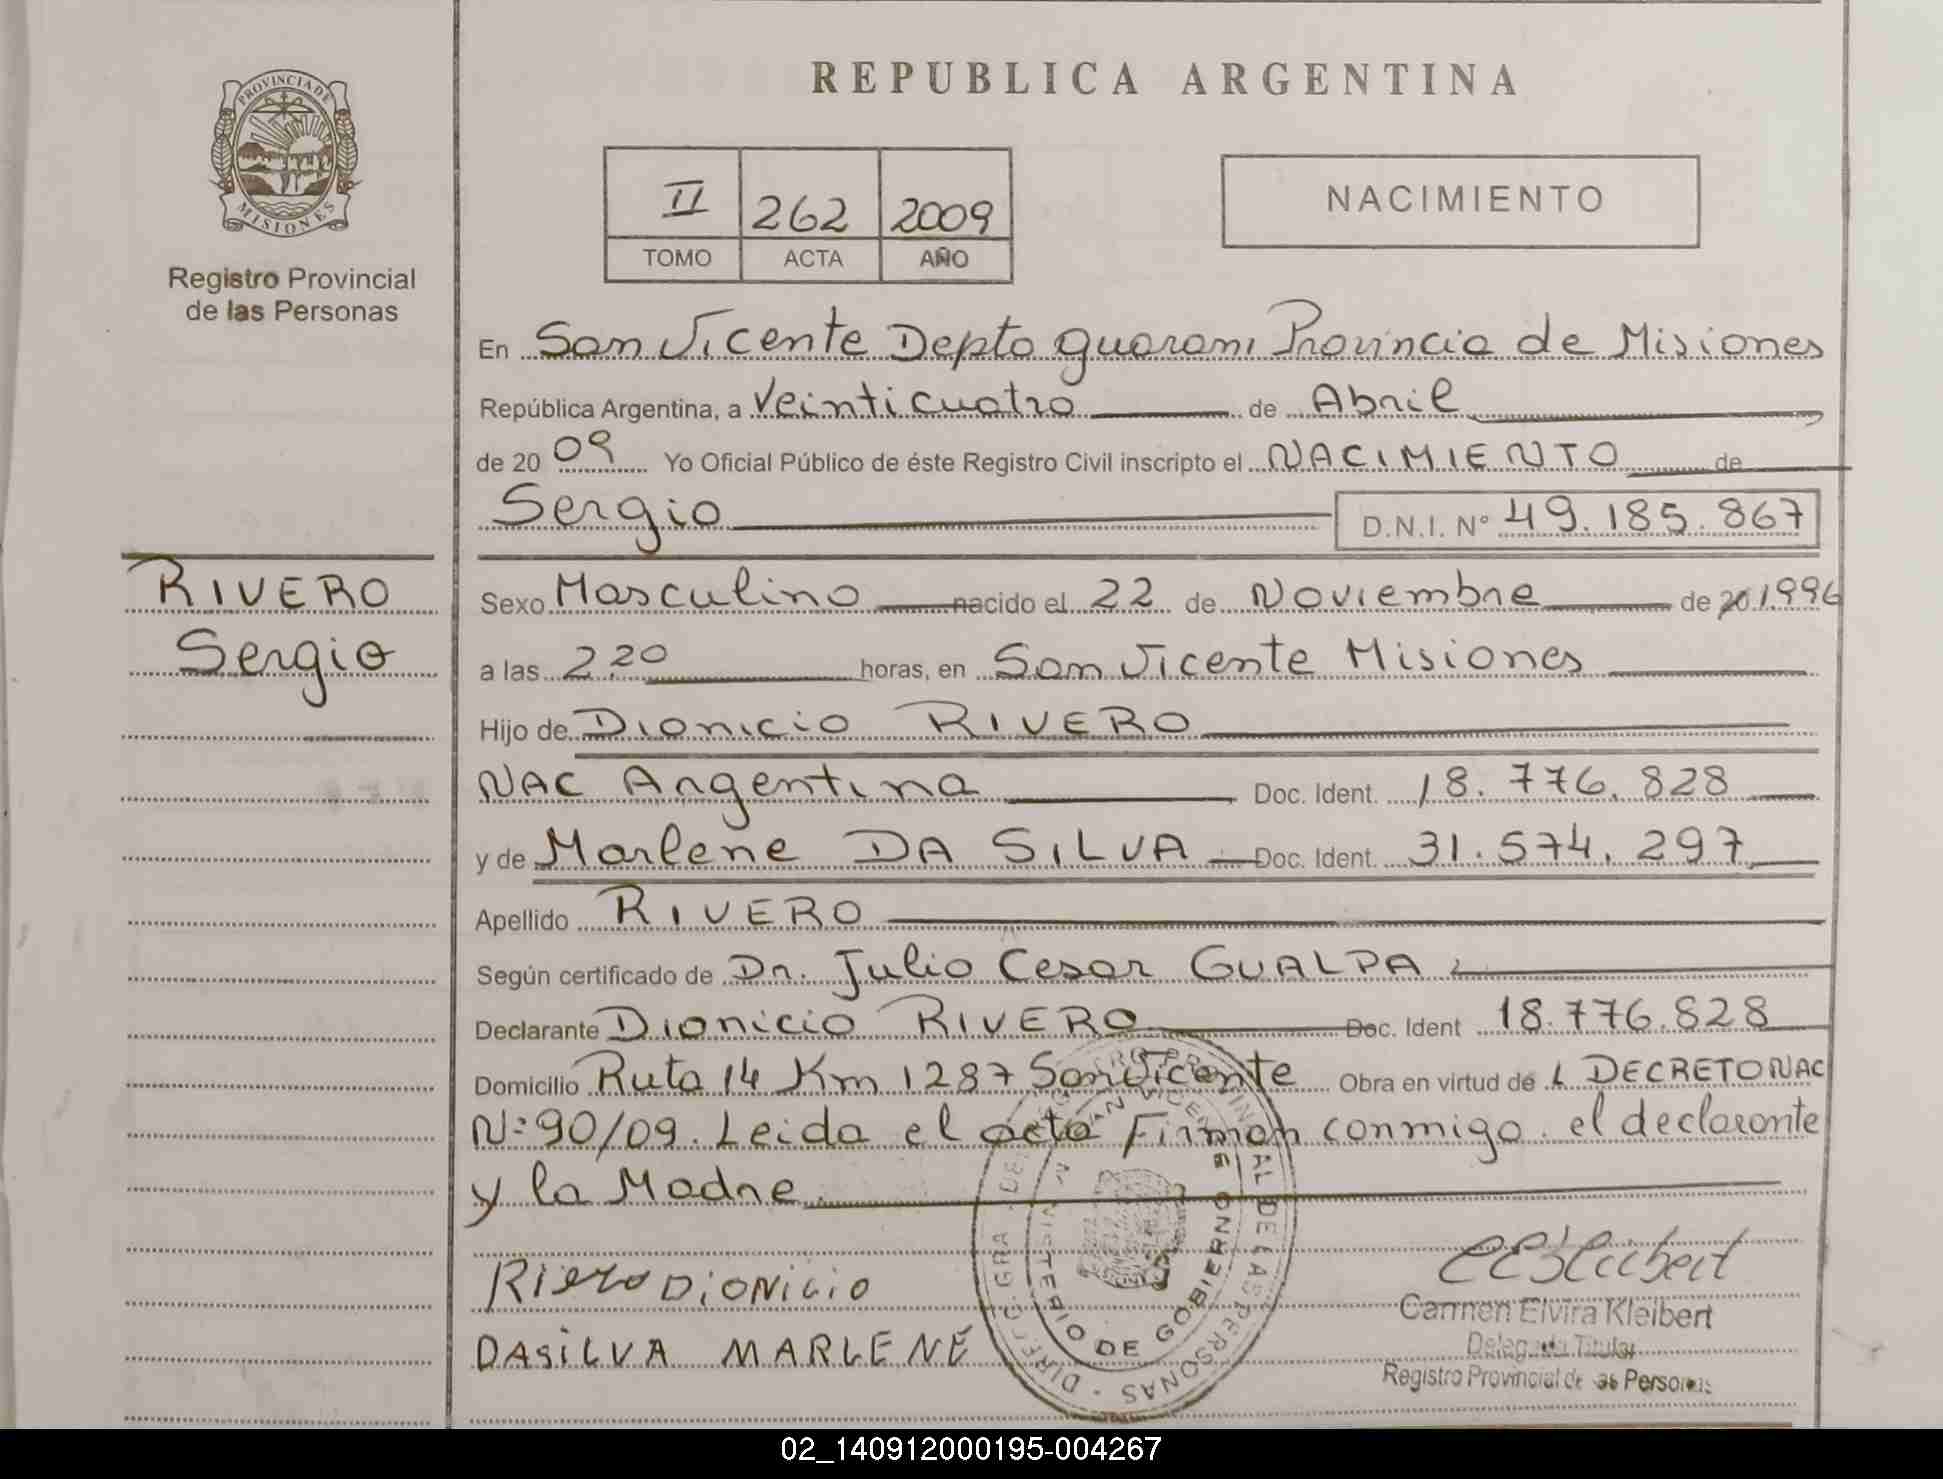 PROVINCIA DE
MISIONES
Registro Provincial
de las Personas
RIVERO
Sergio
REPUBLICA ARGENTINA
II 262 2009
TOMO ACTA AÑO
NACIMIENTO
En San Vicente Depto guarani Provincia de Misiones
República Argentina, a Veinticuatro de Abril
de 2009 Yo Oficial Público de éste Registro Civil inscripto el NACIMIENTO de
Sergio D.N.I. N° 49.185.867
Sexo Masculino nacido el 22 de Noviembre de 20 1996
a las 2,20 horas, en San Vicente Misiones
Hijo de Dionicio RIVERO
NAC Argentina Doc. Ident. 18.776.828
y de Marlene DA SILVA Doc. Ident. 31.574.297
Apellido RIVERO
Según certificado de Dr. Julio Cesar GUALPA
Declarante Dionicio RIVERO Doc. Ident 18.776.828
Domicilio Ruta 14 Km 1287 San Vicente Obra en virtud de L DECRETO NAC
N:90/09. Leida el acta Firman conmigo el declarante
y la Madre
Dionicio
DASiLVA MARLENE
MINISTERIO DE GOBIERNO
PROVINCIAL DE LAS PERSONAS
Carmen Elvira Kleibert
Delegada Titular
Registro Provincial de las Personas
02_140912000195-004267